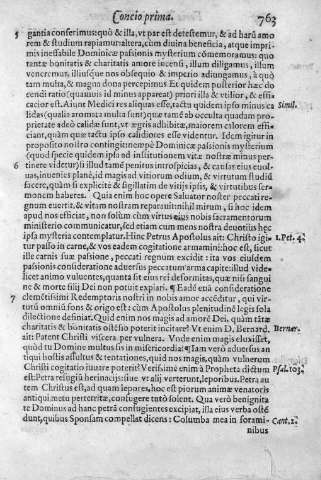 Concio prima. 763
5 gantia conserimus: quò & illa, vt par est detestemur, & ad harū amorem & studium rapiamur: altera, cùm diuina beneficia, atque imprimis inessabile Dominicæ passionis mysterium cōmemoramus: quo
tantæ bonitatis & charitatis amore incensi, illum diligamus, illum
veneremur, illiusque nos obsequio & imperio adiungamus, à quo
tam multa, & magna dona percepimus. Et quidem posterior hæc dicendi ratio (quanuis id minus appareat) prori illa & vtilior, & efficacior est. Aiunt Medici res aliquas esse, tacta quidem ipso minus ca Simil.
lidas (qualia aromata multa sunt) quæ tamē ab occulta quadam proprietate adeò calidæ sunt, vt ægris adhibitæ, maiorem calorem efficiant, quàm quæ tactu ipso calidiores esse videntur. Idem igitur in
proposito nostro contingit: nempè Dominicæ passionis mysterium
(quod specie quidem ipsò ad institutionem vitæ nostræ minus per-
6 tinere videtur) si illud tamē penitus introspicias, & causas eius euoluas, inuenies planè, id magis ad vitiorum odium, & virtutum studiū
facere, quàm si explicitè & sigillatim de vitijs ipsis, & virtutibus sermonem haberes. Quia enim hoc opere Saluator noster peccati regnum euertit, & vitam nostram reparauit: nihil mirum, si hoc idem
apud nos efficiat, non solùm cùm virtus eius nobis sacramentorum
ministerio communicatur, sed etiam cùm mens nostra deuotiùs hęc
ipsa mysteria contemplatur. Hinc Petrus Apostolus ait: Christo igi- 1. Pet. 4.
tur passo in carne, & vos eadem cogitatione armamini: hoc est, sicut
ille carnis suæ passione, peccati regnum excidit: ita vos eiusdem
passionis consideratione aduersus peccatum arma capite: illud videlicet animo voluentes, quanta sit eius rei deformitas, quæ nisi sanguine & morte filij Dei non potuit expiari. ¶ Eadē etiā consideratione
7 clemētissimi Redemptoris nostri in nobis amor accēditur, qui virtutū omniū fons & origo est: cùm Apostolus plenitudinē legis sola
dilectione definiat. Quid enim nos magis ad amorē Dei, quàm tātæ
charitatis & bonitatis ostēsio poterit incitare? Vt enim D. Bernard. Bernar.
ait: Patent Christi viscera, per vulnera. Vnde enim magis eluxisset,
quòd tu Domine multus sis in misericordia? ¶ Iam verò aduersus antiqui hostis assultus & tentationes, quid nos magis, quàm vulnerum
Christi cogitatio iuuare poterit? Verissimè enim à Propheta dictum Psal. 103.
est: Petra refugiū herinacijs: siue vt alij verterunt, leporibus. Petra autem Christus est, ad quam lepores, hoc est piorum animæ venatoris
antiqui metu perterritæ, confugere tutò solent. Qua verò benignitate Dominus ad hanc petrā confugientes excipiat, illa eius verba ostēdunt, quibus Sponsam compellat dicens: Columba mea in foramini- Cant. 2.
nibus